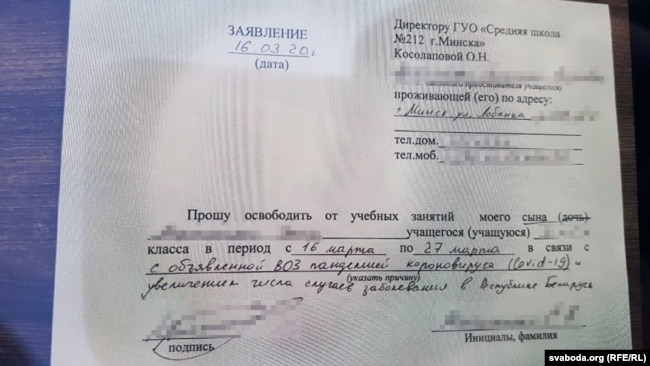 ЗАЯВЛЕНИЕ
16.03.20г
(дата)
Директору ГУО «Средняя школа
№212 г.Минска»
Косолаповой О.Н.
законного представителя учащегося)
проживающей (его) по адресу:
г. Минск ул. Лобанка
тел.дом.
тел.моб.
Прошу освободить от учебных занятий моего сына (дочь)
учащегося (учащуюся)
класса в период с 16 марта по 27 марта в связи с
с объявленной ВОЗ пандемией короновируса (Covid-19) и
(указать причину)
увеличением числа случаев заболевания в Республике Беларусь
подпись
Инициалы, фамилия
svaboda.org (RFE/RL)